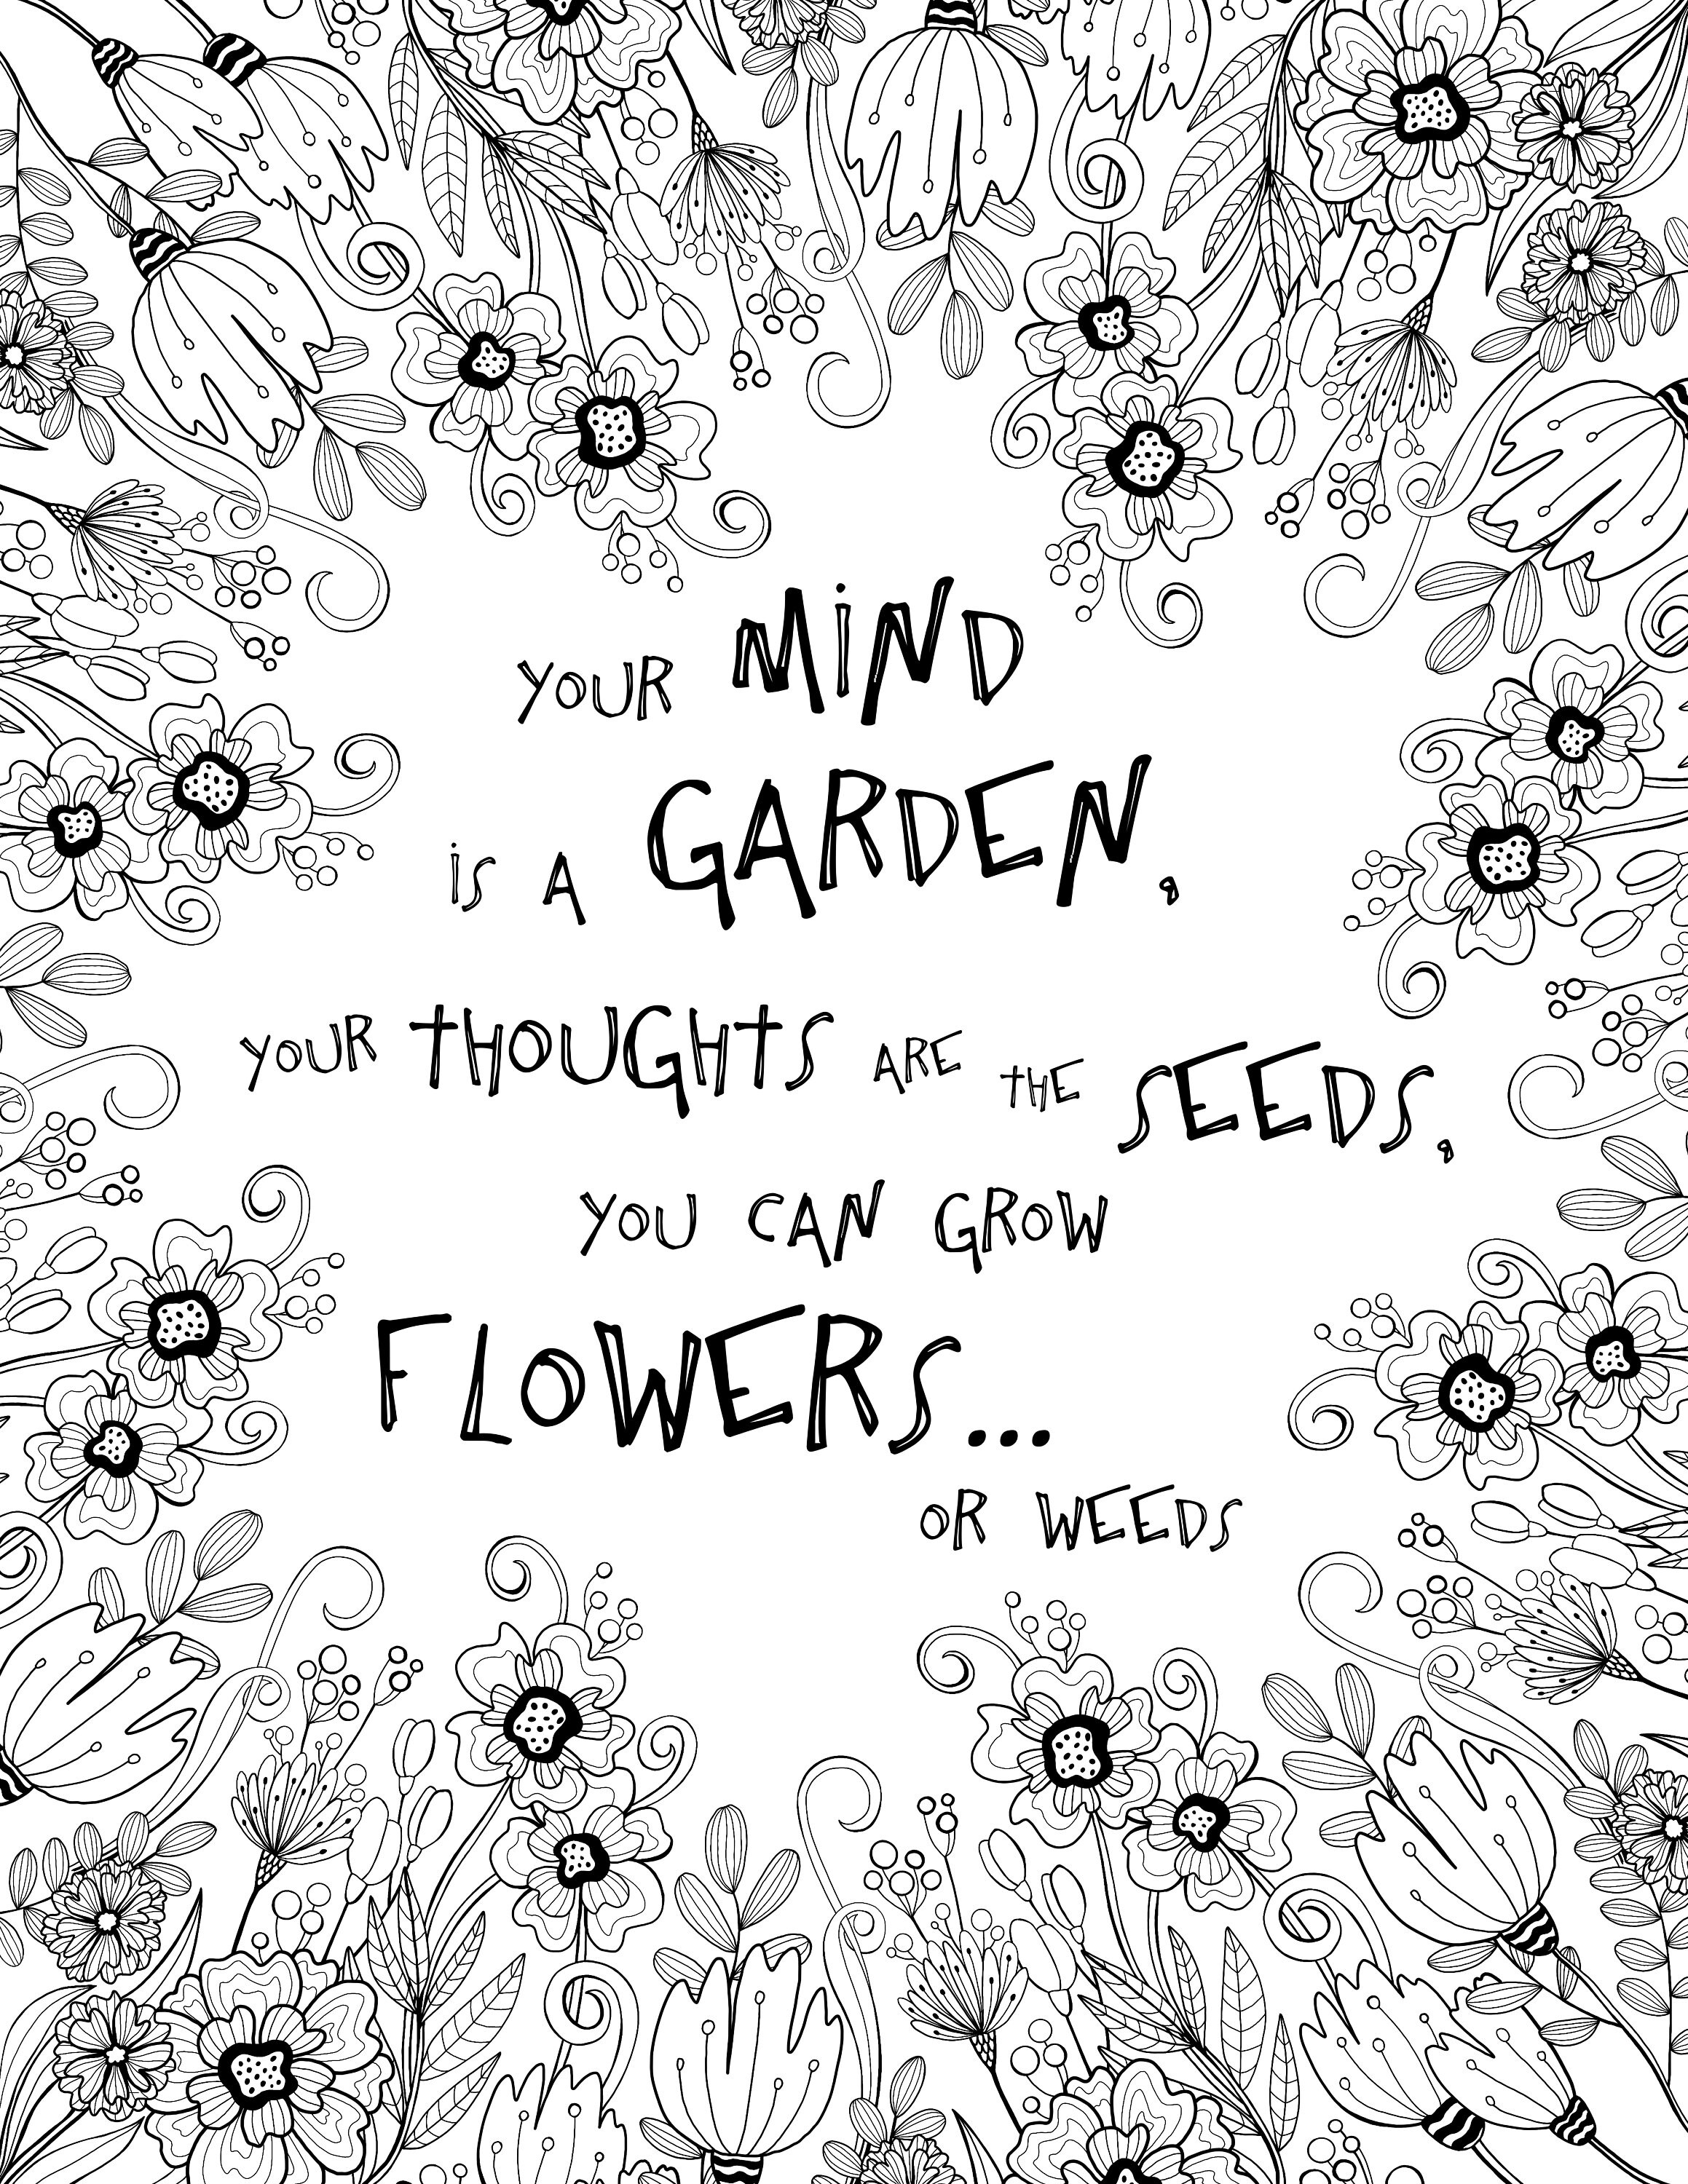 YOUR MiND
iS A GARDEN,
YOUR THOUGHTS ARE THE SEEDS,
YOU CAN GROW
FLOWERS...
OR WEEDS